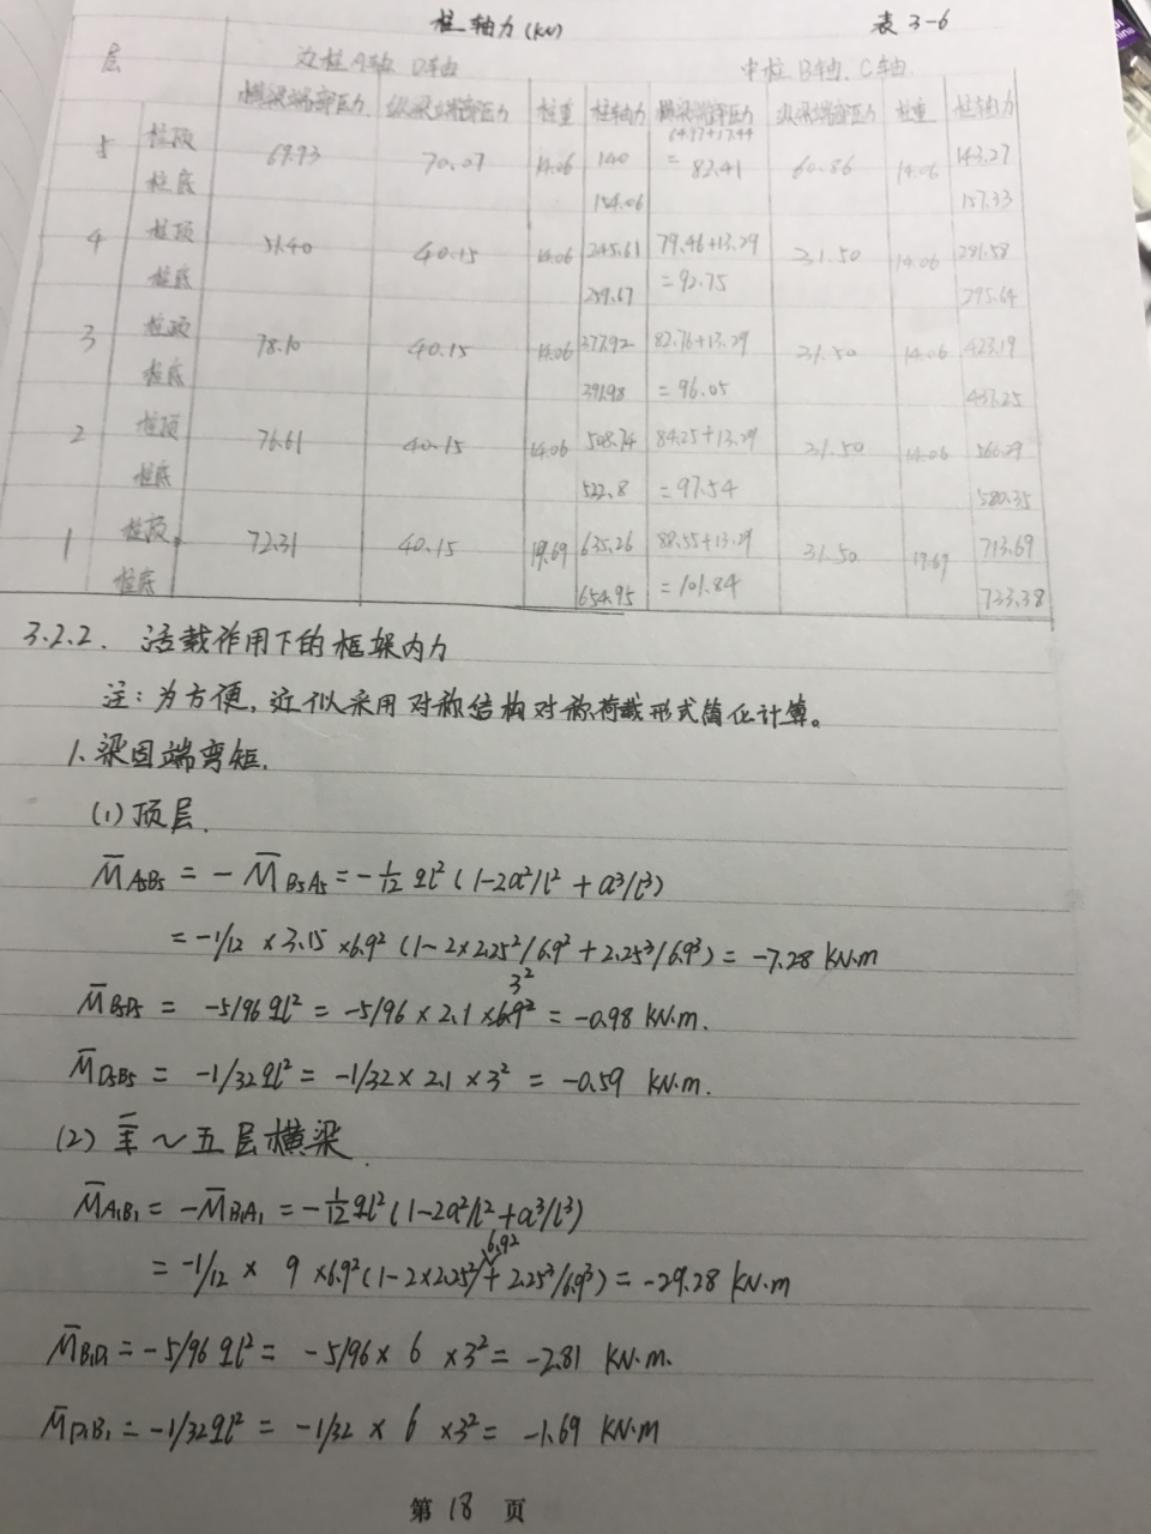 柱轴力(kN) 表3-6
层 边柱A轴 D轴 中柱B轴、C轴
横梁端部压力 纵梁端部压力 柱重 柱轴力 横梁端部压力 纵梁端部压力 柱重 柱轴力
5 柱顶 69.93 70.07 14.06 140 64.97+17.44 60.86 14.06 143.27
柱底 154.06 = 82.41 157.33
4 柱顶 51.40 40.15 14.06 245.61 79.46+13.29 31.50 14.06 281.58
柱底 259.67 = 92.75 295.64
3 柱顶 78.10 40.15 14.06 377.92 82.76+13.29 31.50 14.06 423.19
柱底 391.98 = 96.05 437.25
2 柱顶 76.61 40.15 14.06 508.74 84.25+13.29 31.50 14.06 566.29
柱底 522.8 = 97.54 580.35
1 柱顶 72.31 40.15 19.69 635.26 88.55+13.29 31.50 19.69 713.69
柱底 654.95 = 101.84 733.38
3.2.2. 活载作用下的框架内力
注:为方便,近似采用对称结构对称荷载形式简化计算。
1、梁固端弯矩.
(1) 顶层.
M̅A5B5 = - M̅B5A5 = - 1/12 ql² (1-2a²/l² + a³/l³)
= -1/12 ×3.15 ×6.9² (1-2×2.25²/6.9² + 2.25³/6.9³) = -7.28 kN·m
M̅B5D5 = -5/96 ql² = -5/96 × 2.1 ×3² = -0.98 kN·m.
M̅D5B5 = -1/32 ql² = -1/32 × 2.1 × 3² = -0.59 kN·m.
(2) 一~五层横梁.
M̅A1B1 = -M̅B1A1 = - 1/12 ql² (1-2a²/l²+a³/l³)
= -1/12 × 9 ×6.9² (1-2×2.25²/6.9² + 2.25³/6.9³) = -29.28 kN·m
M̅B1D1 = -5/96 ql² = -5/96 × 6 ×3² = -2.81 kN·m.
M̅D1B1 = -1/32 ql² = -1/32 × 6 ×3² = -1.69 kN·m
第 18 页